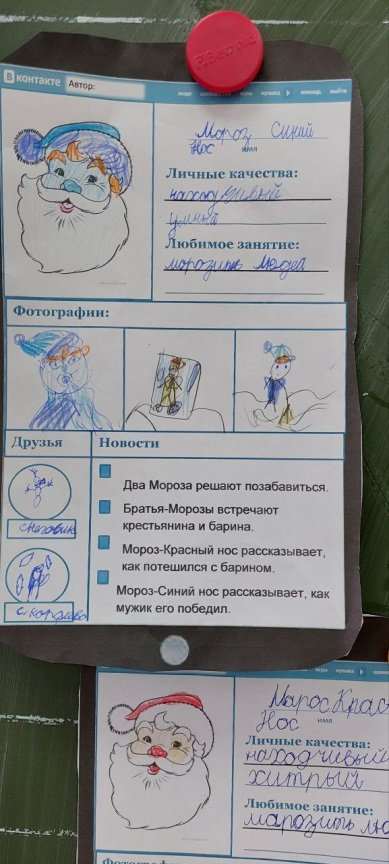 Berlingo
В контакте Автор:
люди сообщества игры музыка помощь выйти
Мороз Синий
Нос имя
Личные качества:
находчивый
умный
Любимое занятие:
морозить людей
Фотографии:
Друзья
Новости
снеговик
с. королева
Два Мороза решают позабавиться.
Братья-Морозы встречают
крестьянина и барина.
Мороз-Красный нос рассказывает,
как потешился с барином.
Мороз-Синий нос рассказывает, как
мужик его победил.
игры музыка помощь
Марос Крас
Нос имя
Личные качества:
находчивый
хитрый
Любимое занятие:
марозить лю
Фотографии: